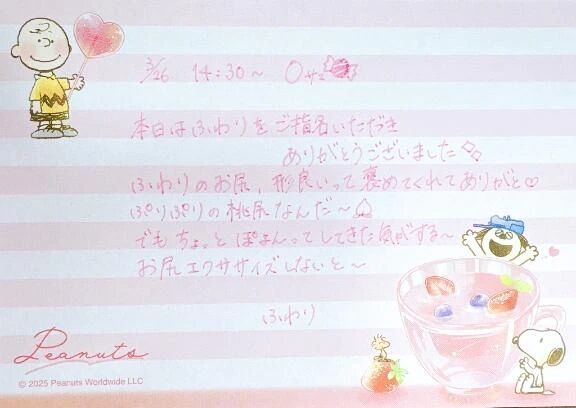 3/26 14:30~ Oサマ
本日はふわりをご指名いただき
ありがとうございました
ふわりのお尻、形良いって褒めてくれてありがと♡
ぷりぷりの桃尻なんだ～
でもちょっとぽよんってしてきた気がする～
お尻エクササイズしないと～
ふわり
Peanuts
© 2025 Peanuts Worldwide LLC